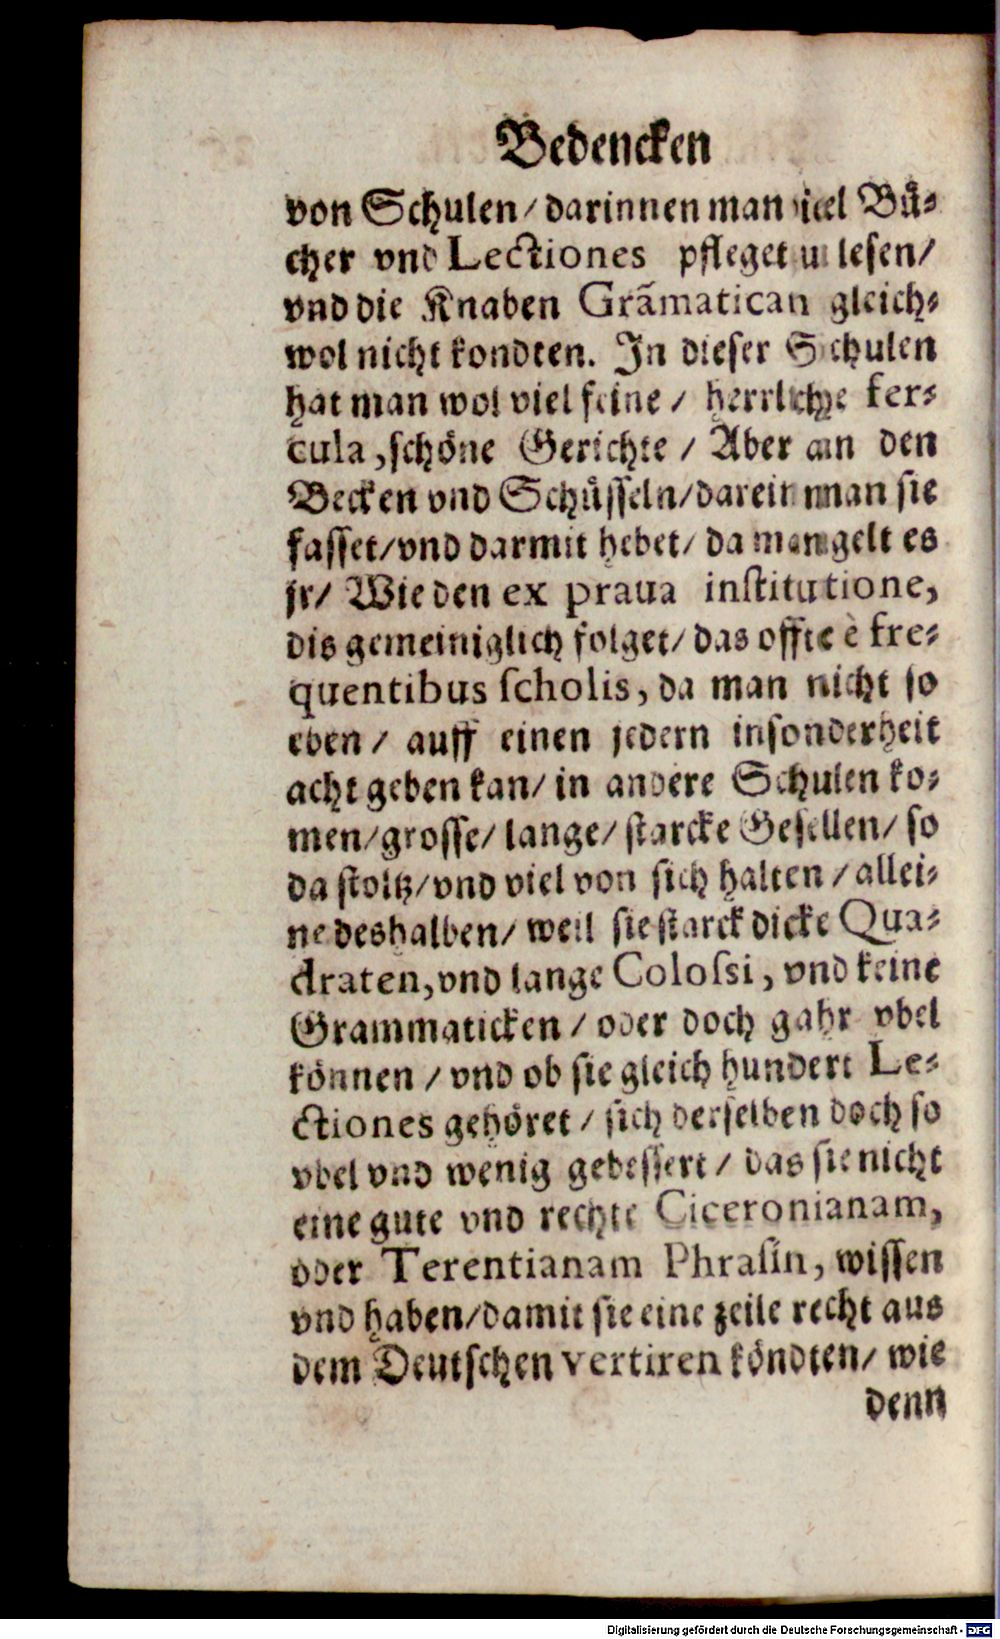 Bedencken
von Schulen/ darinnen man viel Bü-
cher vnd Lectiones pfleget zu lesen/
vnd die Knaben Grãmatican gleich-
wol nicht kondten. In dieser Schulen
hat man wol viel feine/ herrliche fer-
cula, schöne Gerichte/ Aber an den
Becken vnd Schüsseln/ darein man sie
fasset/ vnd darmit hebet/ da mangelt es
jr/ Wie den ex praua institutione,
dis gemeiniglich folget/ das offte è fre-
quentibus scholis, da man nicht so
eben/ auff einen jedern insonderheit
acht geben kan/ in andere Schulen ko-
men/ grosse/ lange/ starcke Gesellen/ so
da stoltz/ vnd viel von sich halten/ allei-
ne deshalben/ weil sie starck dicke Qua-
draten, vnd lange Colossi, vnd keine
Grammaticken/ oder doch gahr vbel
können/ vnd ob sie gleich hundert Le-
ctiones gehöret/ sich derselben doch so
vbel vnd wenig gebessert/ das sie nicht
eine gute vnd rechte Ciceronianam,
oder Terentianam Phrasin, wissen
vnd haben/ damit sie eine zeile recht aus
dem Deutschen vertiren köndten/ wie
denn
Digitalisierung gefördert durch die Deutsche Forschungsgemeinschaft - DFG